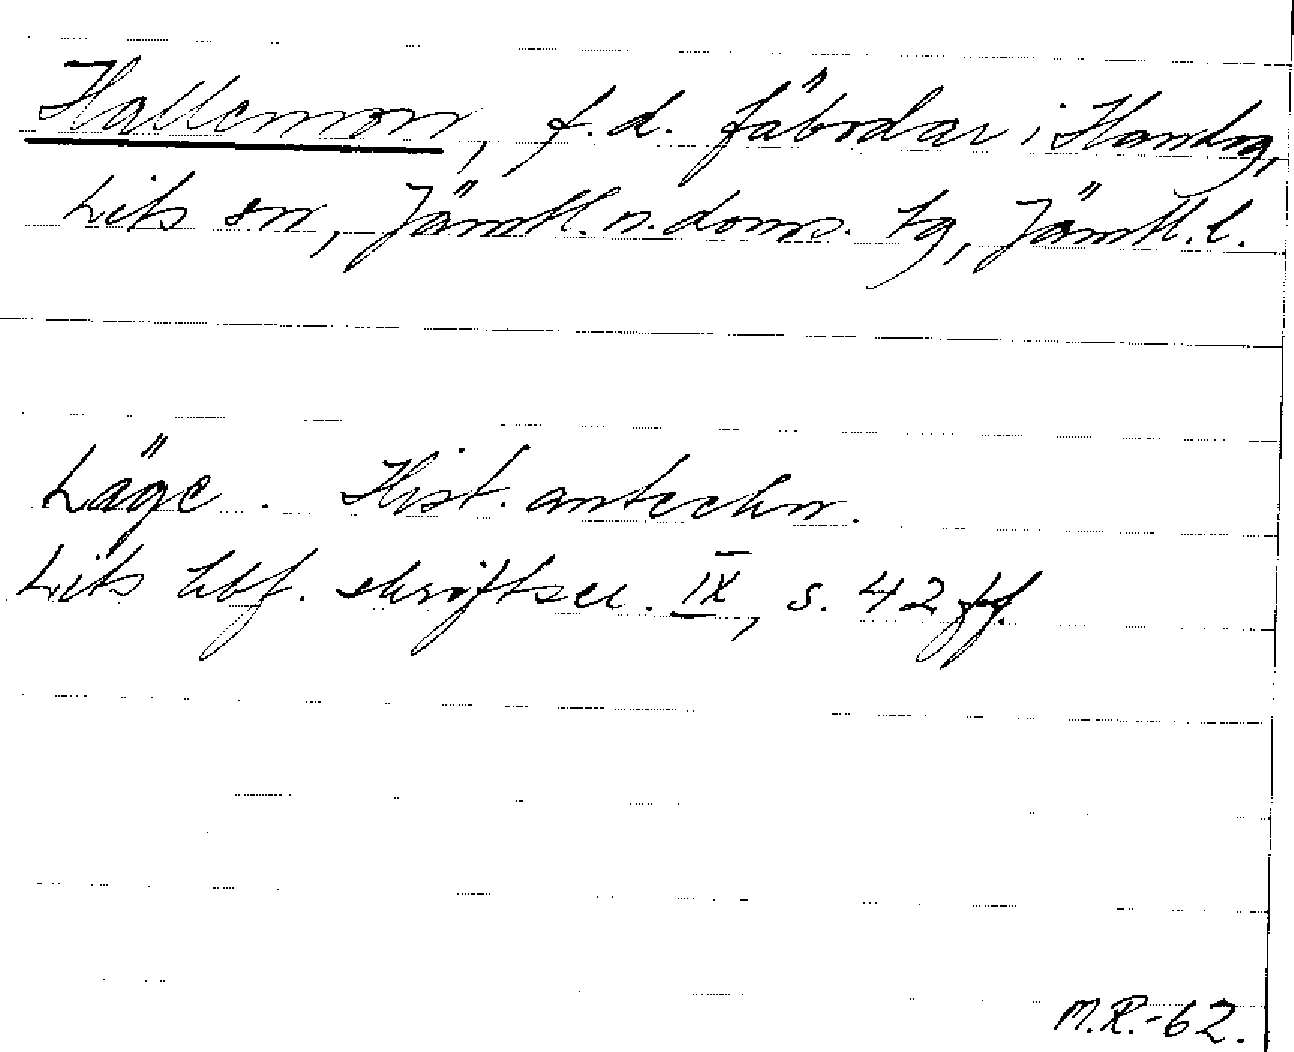 Hallemon, f.d. fäbodar i Handog,
Lits sn, Jämtl. n. doms. tg, Jämtl. l.
Läge. Hist. anteckn.
Lits hbf. skriftser. IX, s. 42 ff.
M.R.-62.